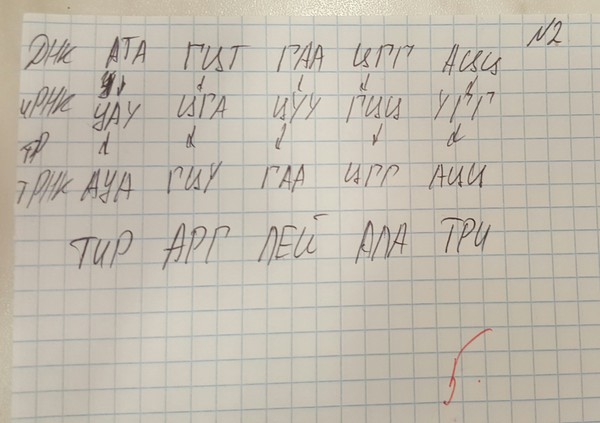 N2
ДНК АТА ГЦТ ГАА ЦГГ АЦЦ
иРНК УАУ ЦГА ЦУУ ГЦЦ УГГ
тР
тРНК АУА ГЦУ ГАА ЦГГ АЦЦ
ТИР АРГ ЛЕЙ АЛА ТРИ
5